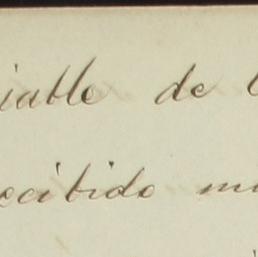 iable de
ecibido